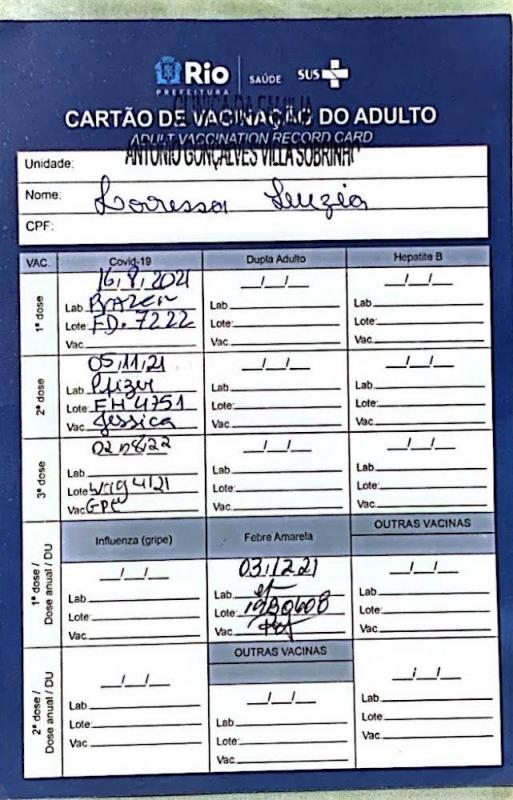 Rio
PREFEITURA
SAÚDE
SUS
CLÍNICA DA FAMÍLIA
CARTÃO DE VACINAÇÃO DO ADULTO
ADULT VACCINATION RECORD CARD
ANTONIO GONÇALVES VILLA SOBRINHO
Unidade:
Nome: Larressa Luzia
CPF:
VAC. Covid-19 Dupla Adulto Hepatite B
1ª dose
16/8/2021 __/__/__ __/__/__
Lab. Lab. Lab.
Lote: FD. 7222 Lote: Lote:
Vac. Vac. Vac.
2ª dose
05/11/21 __/__/__ __/__/__
Lab. Pfizer Lab. Lab.
Lote: FH 4751 Lote: Lote:
Vac. Jéssica Vac. Vac.
3ª dose
02/08/22 __/__/__ __/__/__
Lab. Lab. Lab.
Lote: 4121 Lote: Lote:
Vac. Vac. Vac.
Influenza (gripe) Febre Amarela OUTRAS VACINAS
1ª dose / Dose anual / DU
__/__/__ 03/12/21 __/__/__
Lab. Lab. Lab.
Lote: Lote: Lote:
Vac. Vac. Vac.
OUTRAS VACINAS
2ª dose / Dose anual / DU
__/__/__ __/__/__ __/__/__
Lab. Lab. Lab.
Lote: Lote: Lote:
Vac. Vac. Vac.